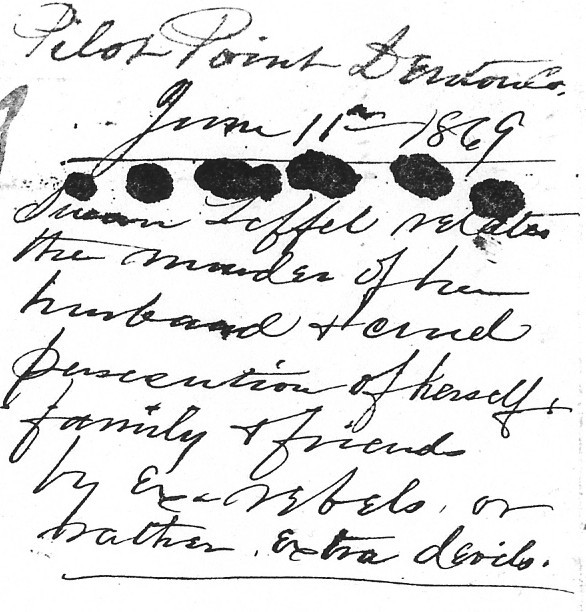 Pilot Point Denton Co.
June 11th 1869
Susan Loffel relates
the murder of her
husband & cruel
persecution of herself,
family & friends
by ex-rebels, or
rather, extra devils.